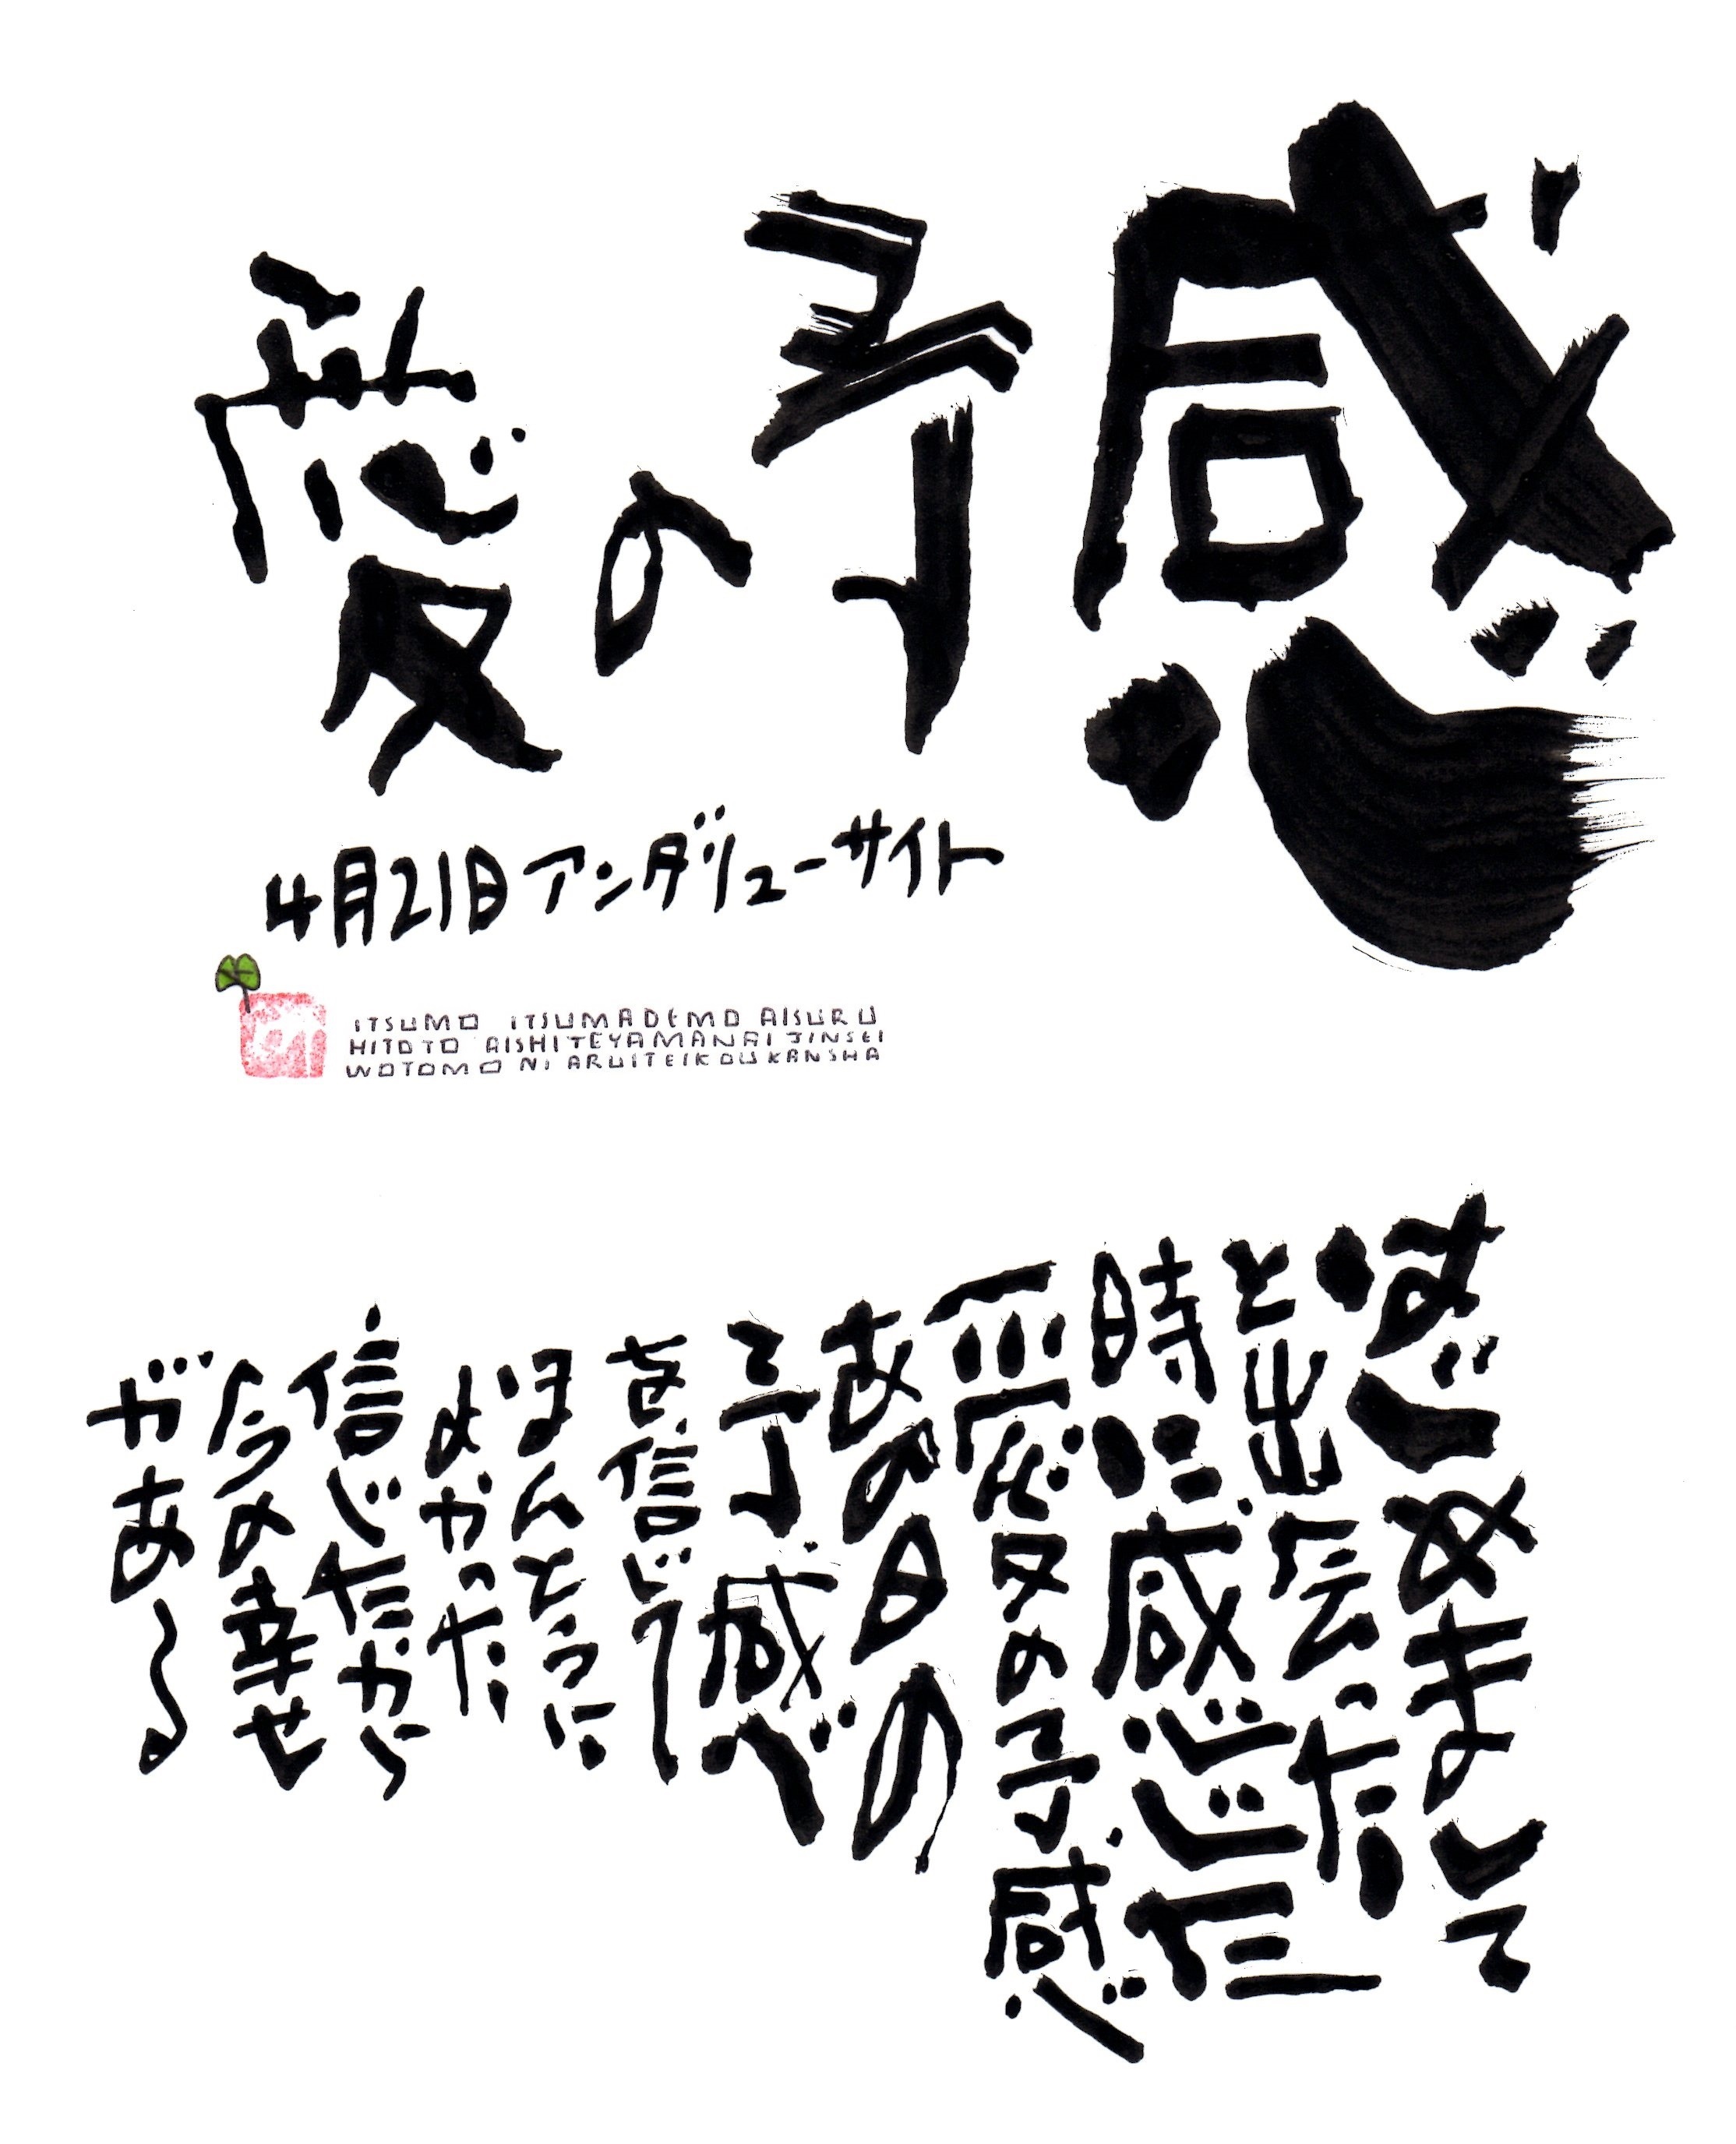 愛の予感
4月21日アンダリューサイト
ITSUMO ITSUMADEMO AISURU
HITOTO AISHITEYAMANAI JINSEI
WOTOMO NI ARUITEIKOU KANSHA
はじめまして
と出会った
時に感じた
愛の予感
あの日の
予感
を信じて
ほんとうに
よかった
信じたから
今の幸せ
がある